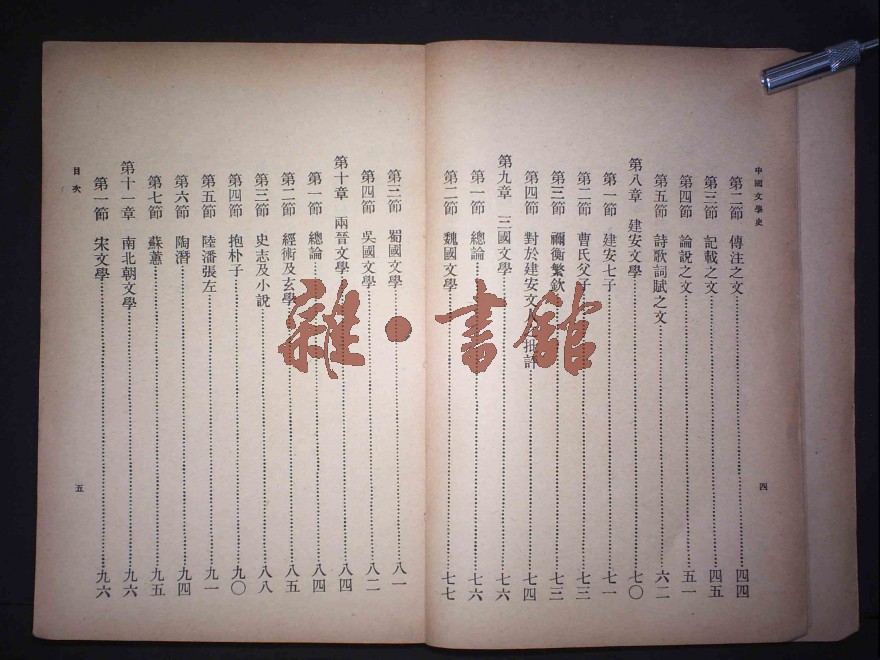 中國文學史
第二節 傳注之文……四四
第三節 記載之文……四五
第四節 論說之文……五一
第五節 詩歌詞賦之文……六二
第八章 建安文學……七〇
第一節 建安七子……七一
第二節 曹氏父子……七三
第三節 禰衡繁欽……七三
第四節 對於建安文人之批評……七四
第九章 三國文學……七六
第一節 總論……七六
第二節 魏國文學……七七
四
第三節 蜀國文學……八一
第四節 吳國文學……八二
第十章 兩晉文學……八四
第一節 總論……八四
第二節 經術及玄學……八五
第三節 史志及小說……八八
第四節 抱朴子……九〇
第五節 陸潘張左……九一
第六節 陶潛……九四
第七節 蘇蕙……九五
第十一章 南北朝文學……九六
第一節 宋文學……九六
目次
五
雜·書館